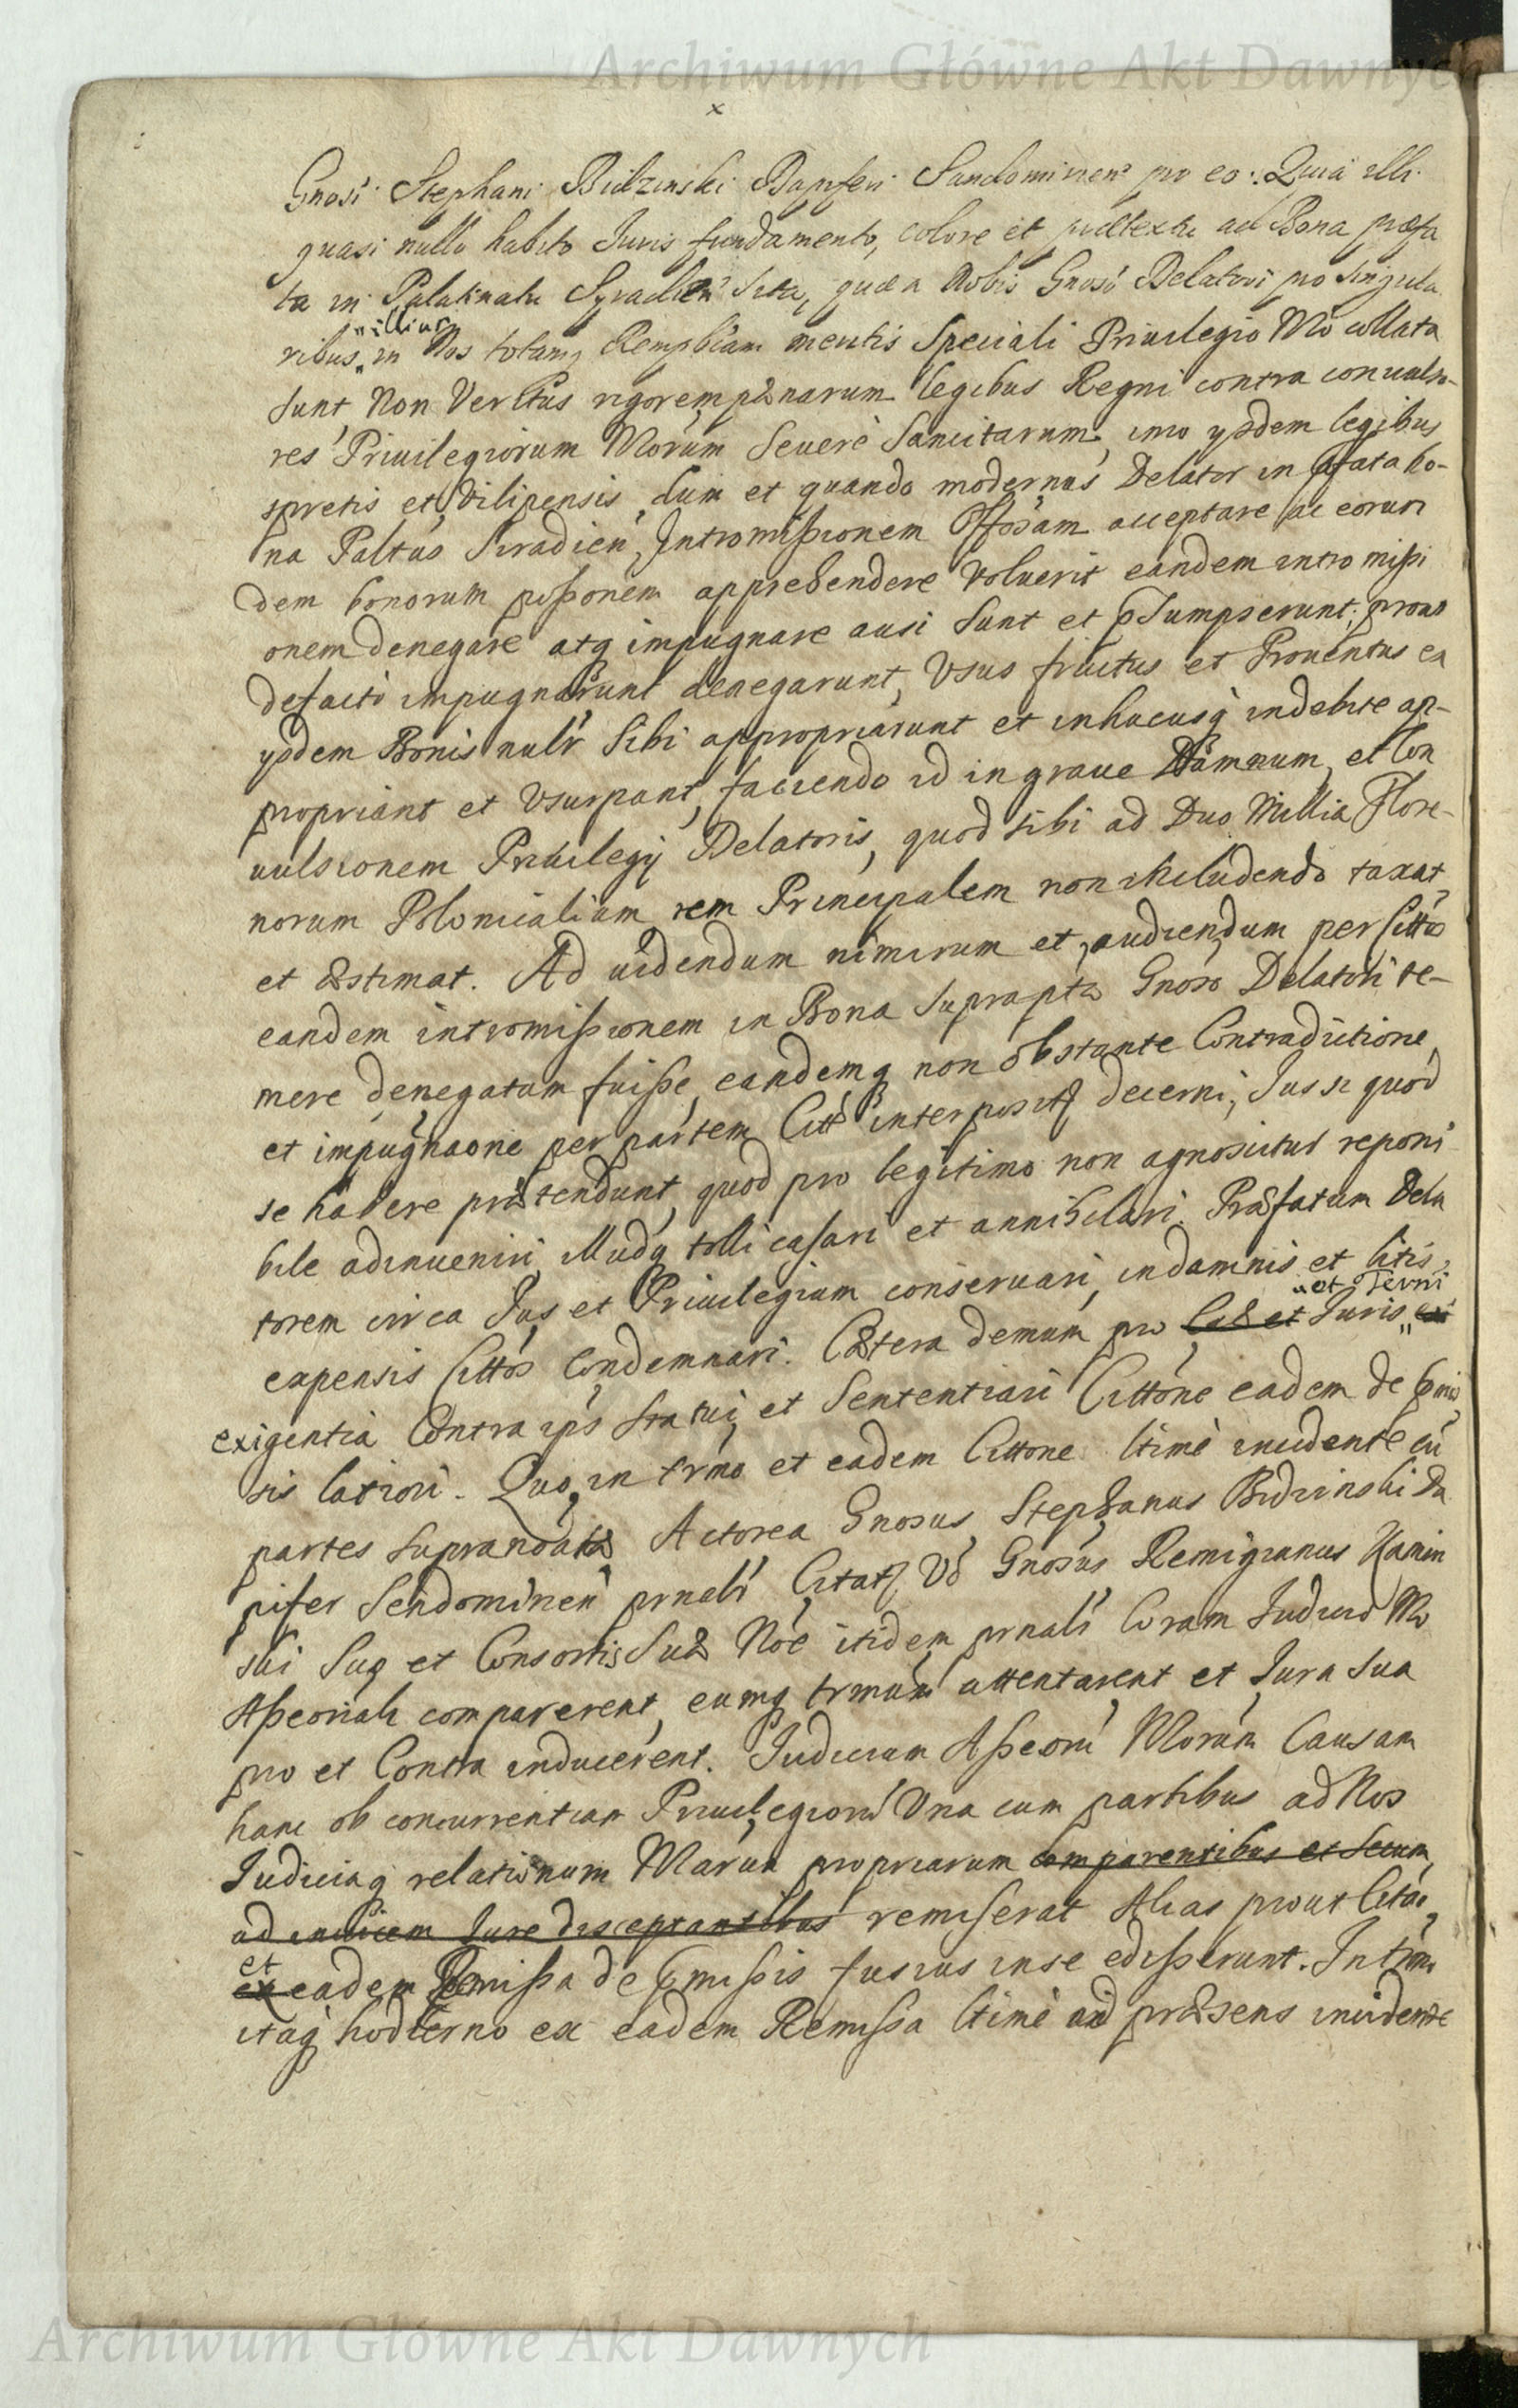 Archiwum Główne Akt Dawnych
x
Gnosi Stephani Bidzinski Dapiferi Sandomirien pro eo: Quia illi
quasi nullo habito Juris fundamento, colore et prætextu ad Bona præfa
ta in Palatinatu Syradien sita, quæ a Nobis Gnoso Delatori pro singula
„illius
ribus „ in Nos totamq Rempbcam meritis speciali Priuilegio Nro collata
sunt, Non Veritus rigorem pænarum legibus Regni contra conuulso-
res Priuilegiorum Nrorum seuerè sancitarum, imo ysdem legibus
spretis et vilipensis, dum et quando modernus Delator in pfata bo-
na Paltus Siradien, Intromissionem Offosam acceptare ac eorun
dem bonorum possonem apprehendere voluerit eandem intromissi
onem denegare atq impugnare ausi sunt et psumpserunt; prout
de facto impugnarunt denegarunt, Vsus fructus et Prouentus ex
ysdem Bonis nulr sibi appropriarunt et inhucusq indebite ap-
propriant et Vsurpant, faciendo id in graue Damnum, et Con
uulsionem Priuilegij Delatoris, quod sibi ad Duo Millia Flore-
norum Polonicalium rem Principalem non includendo taxat,
et æstimat. Ad uidendum nimirum et, audiendum per Cittos
eandem intromissionem in Bona suprapta Gnoso Delatori te-
mere denegatam fuisse, eandemq non obstante Contradictione,
et impugnaone per partem Cittæ interposita decerni, Jus si quod
se habere prætendunt, quod pro legitimo non agnoscitur reponi
bile adinueniri, illudq tolli casari et annihilari. Præfatum Dela
torem circa Jus et Priuilegium conseruari, indamnis et litis,
„et Termi
expensis Cittos Condemnari. Cætera demum pro Juris „
exigentia Contra ips statui, et sententiari Cittone eadem de pmis
sis latiori. Quo, in trmo et eadem Cittone ltimè incidente cū
partes suprandatæ Actorea Gnosus Stephanus Bidzinski Da
pifer Sendomirien prnalr Citata Vo Gnosus Remigianus Kamin
ski suo et Consortis suæ Noe itidem prnalr Coram Judicio Nro
Asseoriali comparerent, eumq trmum attentarent et Jura sua
pro et Contra inducerent. Judicium Asseorū Nrorum Causam
hanc ob concurrentiam Priuilegiorū Vna cum partibus ad Nos
Judiciaq relationum Nrarum propriarum comparentibus et secum,
ad inuicem Jure disceptantibus remiserat Alias prout Citao,
et
ex eadem Remissa de pmissis fusius in se edisserunt. In trmo
itaq hodierno ex eadem Remissa ltimè ad præsens incidente
Archiwum Główne Akt Dawnych